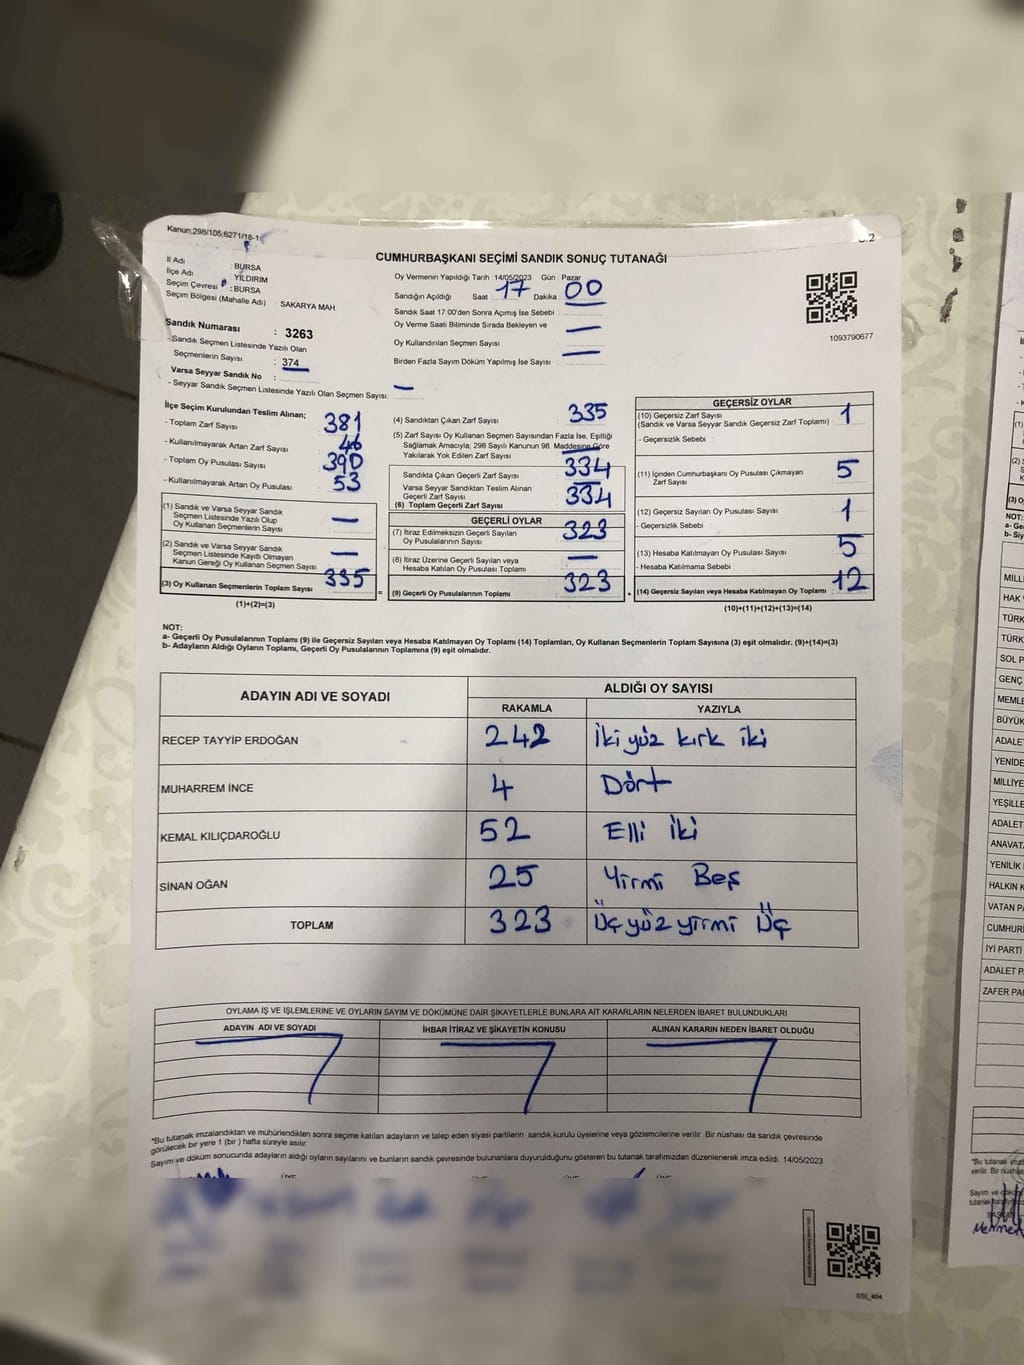 Kanun:298/105;6271/18-1
CUMHURBAŞKANI SEÇİMİ SANDIK SONUÇ TUTANAĞI
İl Adı : BURSA
İlçe Adı : YILDIRIM
Seçim Çevresi : BURSA
Seçim Bölgesi (Mahalle Adı) : SAKARYA MAH
Sandık Numarası : 3263
- Sandık Seçmen Listesinde Yazılı Olan
Seçmenlerin Sayısı : 374
Varsa Seyyar Sandık No :
- Seyyar Sandık Seçmen Listesinde Yazılı Olan Seçmen Sayısı: —
Oy Vermenin Yapıldığı Tarih : 14/05/2023 Gün : Pazar
Sandığın Açıldığı Saat : 17 Dakika : 00
Sandık Saat 17:00'den Sonra Açımış İse Sebebi :
Oy Verme Saati Bitiminde Sırada Bekleyen ve —
Oy Kullandırılan Seçmen Sayısı :
Birden Fazla Sayım Döküm Yapılmış İse Sayısı : —
1093790677
İlçe Seçim Kurulundan Teslim Alınan;
- Toplam Zarf Sayısı : 381
- Kullanılmayarak Artan Zarf Sayısı : 46
- Toplam Oy Pusulası Sayısı : 390
- Kullanılmayarak Artan Oy Pusulası : 53
(1) Sandık ve Varsa Seyyar Sandık
Seçmen Listesinde Yazılı Olup
Oy Kullanan Seçmenlerin Sayısı : —
(2) Sandık ve Varsa Seyyar Sandık
Seçmen Listesinde Kayıtlı Olmayan
Kanun Gereği Oy Kullanan Seçmen Sayısı : —
(3) Oy Kullanan Seçmenlerin Toplam Sayısı : 335
(1)+(2)=(3)
(4) Sandıktan Çıkan Zarf Sayısı : 335
(5) Zarf Sayısı Oy Kullanan Seçmen Sayısından Fazla İse, Eşitliği
Sağlamak Amacıyla; 298 Sayılı Kanunun 98. Maddesine Göre
Yakılarak Yok Edilen Zarf Sayısı : —
Sandıkta Çıkan Geçerli Zarf Sayısı : 334
Varsa Seyyar Sandıktan Teslim Alınan
Geçerli Zarf Sayısı : —
(6) Toplam Geçerli Zarf Sayısı : 334
GEÇERLİ OYLAR
(7) İtiraz Edilmeksizin Geçerli Sayılan
Oy Pusulalarının Sayısı : 323
(8) İtiraz Üzerine Geçerli Sayılan veya
Hesaba Katılan Oy Pusulası Toplamı : —
(9) Geçerli Oy Pusulalarının Toplamı : 323
GEÇERSİZ OYLAR
(10) Geçersiz Zarf Sayısı : 1
(Sandık ve Varsa Seyyar Sandık Geçersiz Zarf Toplamı)
- Geçersizlik Sebebi :
(11) İçinden Cumhurbaşkanı Oy Pusulası Çıkmayan
Zarf Sayısı : 5
(12) Geçersiz Sayılan Oy Pusulası Sayısı : 1
- Geçersizlik Sebebi :
(13) Hesaba Katılmayan Oy Pusulası Sayısı : 5
- Hesaba Katılmama Sebebi :
(14) Geçersiz Sayılan veya Hesaba Katılmayan Oy Toplamı : 12
(10)+(11)+(12)+(13)=(14)
NOT:
a- Geçerli Oy Pusulalarının Toplamı (9) ile Geçersiz Sayılan veya Hesaba Katılmayan Oy Toplamı (14) Toplamları, Oy Kullanan Seçmenlerin Toplam Sayısına (3) eşit olmalıdır. (9)+(14)=(3)
b- Adayların Aldığı Oyların Toplamı, Geçerli Oy Pusulalarının Toplamına (9) eşit olmalıdır.
ADAYIN ADI VE SOYADI ALDIĞI OY SAYISI
RAKAMLA YAZIYLA
RECEP TAYYİP ERDOĞAN 242 İki yüz kırk iki
MUHARREM İNCE 4 Dört
KEMAL KILIÇDAROĞLU 52 Elli iki
SİNAN OĞAN 25 Yirmi Beş
TOPLAM 323 Üç yüz yirmi Üç
OYLAMA İŞ VE İŞLEMLERİNE VE OYLARIN SAYIM VE DÖKÜMÜNE DAİR ŞİKAYETLERLE BUNLARA AİT KARARLARIN NELERDEN İBARET BULUNDUKLARI
ADAYIN ADI VE SOYADI İHBAR İTİRAZ VE ŞİKAYETİN KONUSU ALINAN KARARIN NEDEN İBARET OLDUĞU
*Bu tutanak imzalandıktan ve mühürlendikten sonra seçime katılan adayların ve talep eden siyasi partilerin sandık kurulu üyelerine veya gözlemcilerine verilir. Bir nüshası da sandık çevresinde
görülecek bir yere 1 (bir) hafta süreyle asılır.
Sayım ve döküm sonucunda adayların aldığı oyların sayılarını ve bunların sandık çevresinde bulunanlara duyurulduğunu gösteren bu tutanak tarafımızdan düzenlenerek imza edildi. 14/05/2023
SSI_404
MİLLİ
HAK
TÜRK
TÜRK
SOL P
GENÇ
MEMLE
BÜYÜK
ADALE
YENİDE
MİLLİYE
YEŞİLLE
ADALET
ANAVAT
YENİLİK
HALKIN K
VATAN PA
CUMHURİ
İYİ PARTİ
ADALET P
ZAFER PA